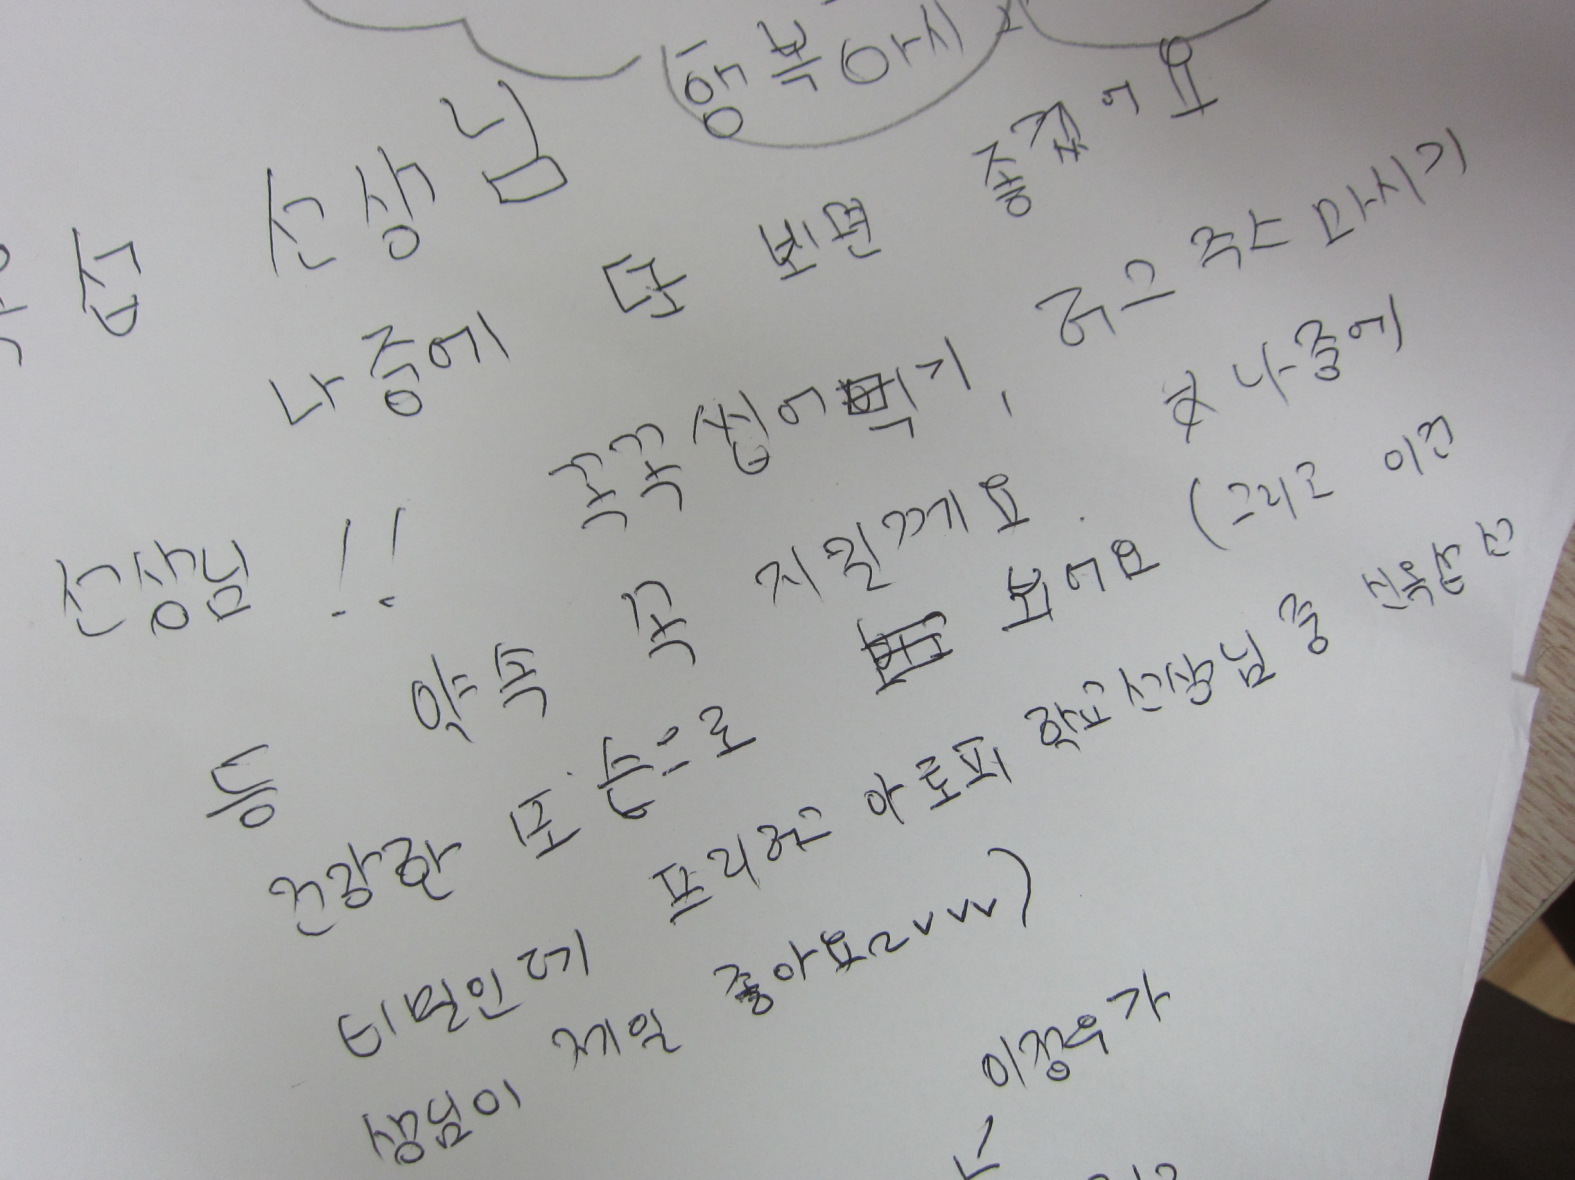 행복하시고
선생님
나중에 또 뵈면 좋겠어요
선생님!! 꼭꼭 씹어먹기, 쥬스 마시기
등 약속 꼭 지킬께요. 나중에
건강한 모습으로 뵈어요 (그리고 이건
비밀인데 프리허그 아토피 학교선생님 중 진옥선 선
생님이 제일 좋아요~vvv)
이정우가